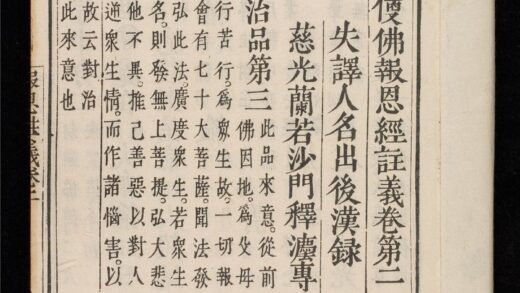 便佛報恩經註義卷第二
失譯人名出後漢錄
慈光蘭若沙門釋灋專
治品第三 此品來意。從前
佛因地。爲父母
行苦行。爲衆生故。一切報
會有七十大菩薩。聞法發
弘此法。廣度衆生。若衆生
名。則發無上菩提。弘大悲
他不異。推己善惡以對人
道衆生情。而作諸惱害。以
故云對治
此來意也